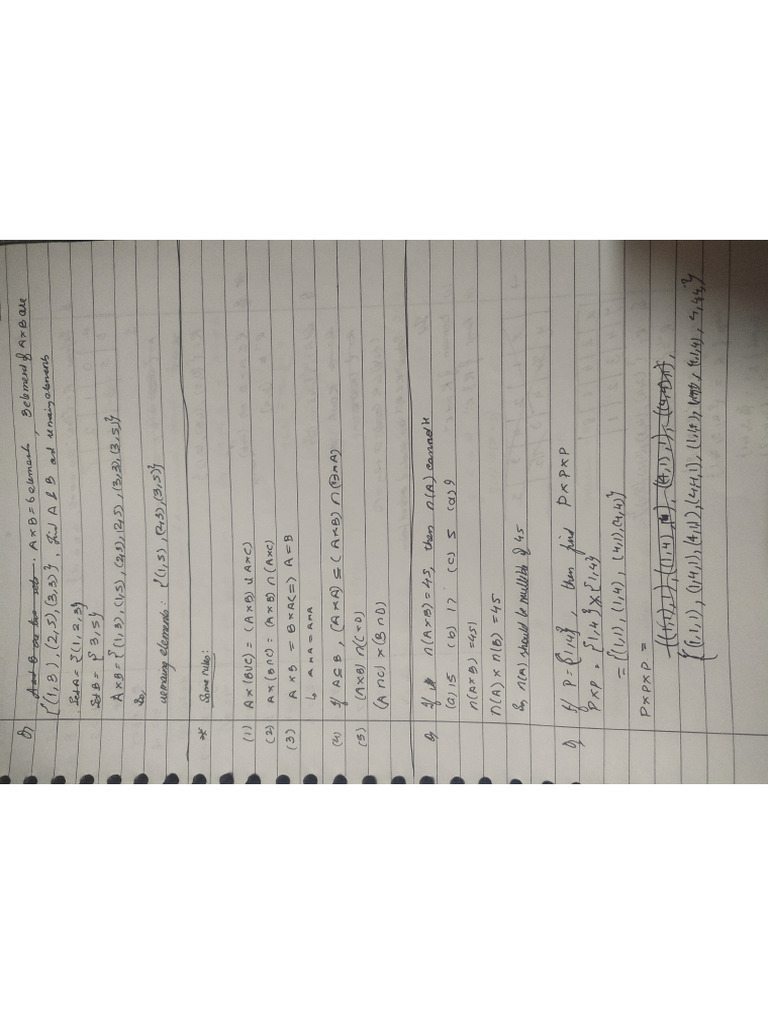 Q) A and B are two sets. A×B = 6 elements, 3 element of A×B are
{(1,3), (2,5), (3,3)}, find A & B and remaing elements
Set A = {1,2,3}
Set B = {3,5}
A×B = {(1,3), (1,5), (2,3), (2,5), (3,3), (3,5)}
So,
remaing elements: {(1,5), (2,3), (3,5)}
* Some rules:
(1) A×(B∪C) = (A×B) ∪ A×C)
(2) A×(B∩C) = (A×B) ∩ (A×C)
(3) A×B = B×A (=) A=B
↳ A×A = A×A
(4) If A⊆B, (A×A) ⊆ (A×B) ∩ (B×A)
(5) (A×B) ∩ (C×D)
(A∩C) × (B∩D)
Q) If n(A×B) = 45, then n(A) cannot be
(a) 15 (b) 17 (c) 5 (d) 9
n(A×B) = 45
n(A) × n(B) = 45
So, n(A) should be multiple of 45
Q) If P = {1,4}, then find P×P×P
P×P = {1,4} × {1,4}
= {(1,1), (1,4), (4,1), (4,4)}
P×P×P =
{(1,1,1), (1,4,1), (4,1,1), (4,4,1), (1,1,4), (1,4,4), (4,1,4), (4,4,4)}